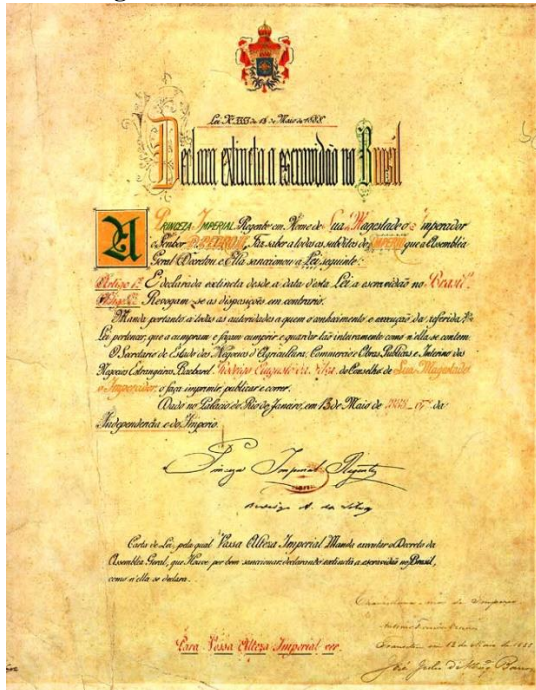 Lei Nº 3353 de 13 de Maio de 1888.
Declara extincta a escravidão no Brasil
A PRINCEZA IMPERIAL Regente em Nome de Sua Magestade o Imperador
o Senhor D. PEDRO II, Faz saber a todos os subditos do IMPERIO que a Assembléa
Geral Decretou e Ella sanccionou a Lei seguinte:
Artigo 1º É declarada extincta desde a data d'esta Lei a escravidão no Brasil.
Artigo 2º Revogam-se as disposições em contrario.
Manda portanto a todas as autoridades a quem o conhecimento e execução da referida
Lei pertencer, que a cumpram e façam cumprir e guardar tão inteiramente como n'ella se contem.
O Secretario de Estado dos Negocios d'Agricultura, Commercio e Obras Publicas e Interino dos
Negocios Estrangeiros, Bacharel Rodrigo Augusto da Silva, do Conselho de Sua Magestade
o Imperador, o faça imprimir, publicar e correr.
Dado no Palacio do Rio de Janeiro, em 13 de Maio de 67º da
Independencia e do Imperio.
Princeza Imperial Regente
Rodrigo A. da Silva
Carta de Lei, pela qual Vossa Alteza Imperial Manda executar o Decreto da
Assembléa Geral, que Houve por bem sanccionar declarando extincta a escravidão no Brasil,
como n'ella se declara.
Para Vossa Alteza Imperial ver.
Chancellaria-mór do Imperio
Antonio Ferreira Vianna
Transitou em 13 de Maio de 1888
José Julio de Albuqº Barros